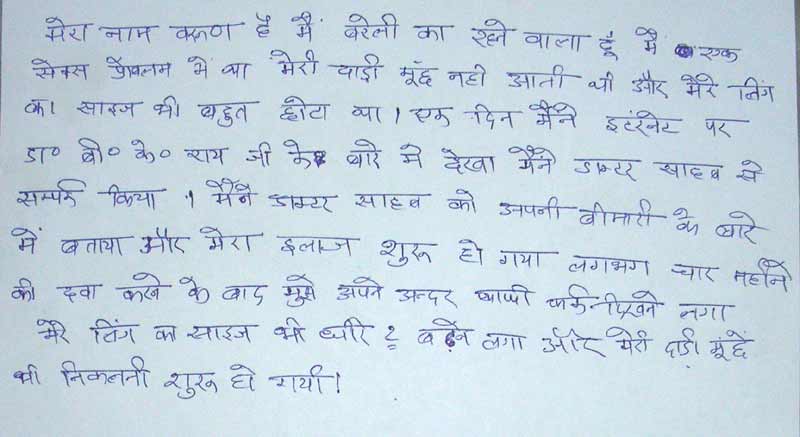 मेरा नाम वरूण है मैं बरेली का रहने वाला हूँ मैं एक
सेक्स प्रोबलम में था मेरी दाड़ी मूंछ नहीं आती थी और मेरे लिंग
का साइज भी बहुत छोटा था। एक दिन मैंने इटंरनेट पर
डा० बी० के० राय जी के बारे मे देखा मैंने डाक्टर साहब से
सम्पर्क किया । मैंने डाक्टर साहब को अपनी बीमारी के बारे
में बताया और मेरा इलाज शुरू हो गया लगभग चार महीने
की दवा करने के बाद मुझे अपने अन्दर काफी फर्क दिखने लगा
मेरे लिंग का साइज भी धीरे २ बढ़ने लगा और मेरी दाड़ी मूंछे
भी निकलनी शुरू हो गयी।